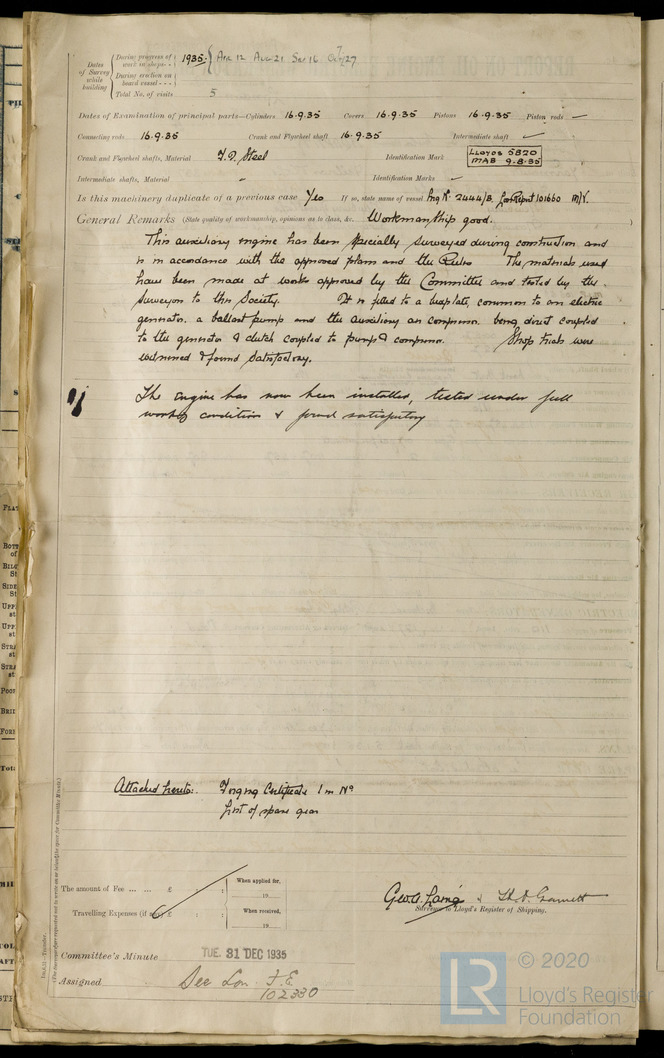 Dates of Survey while building
During progress of work in shops - - 1935: Apr 12 Aug 21 Sep 16 Oct 7/27
During erection on board vessel - - -
Total No. of visits 5
Dates of Examination of principal parts—Cylinders 16.9.35 Covers 16.9.35 Pistons 16.9.35 Piston rods —
Connecting rods 16.9.35 Crank and Flywheel shaft 16.9.35 Intermediate shaft
Crank and Flywheel shafts, Material Steel Identification Mark LLOYDS 5820
MAB 9.8.35
Intermediate shafts, Material Identification Marks
Is this machinery duplicate of a previous case Yes If so, state name of vessel Eng No 2444/8. Report 101660 M/V.
General Remarks (State quality of workmanship, opinions as to class, &c. Workmanship good.
This auxiliary engine has been specially surveyed during construction and
is in accordance with the approved plans and the Rules The materials used
have been made at works approved by the Committee and tested by the
Surveyors to this Society. It is fitted to a bedplate common to an electric
generator. a ballast pump and the auxiliary air compressor being direct coupled
to the generator & clutch coupled to pump & compressor. Shop trials were
witnessed & found satisfactory.
The engine has now been installed, tested under full
working condition & found satisfactory
Attached hereto:. Forging Certificate 1 in No
List of spare gear
The amount of Fee ... ... £ : : When applied for,
19
Travelling Expenses (if any) £ : : When received,
19
Geo. A. Laing &
Surveyor to Lloyd's Register of Shipping.
Committee's Minute TUE. 31 DEC 1935
Assigned See Lon. F.E.
102330
LR © 2020
Lloyd's Register
Foundation